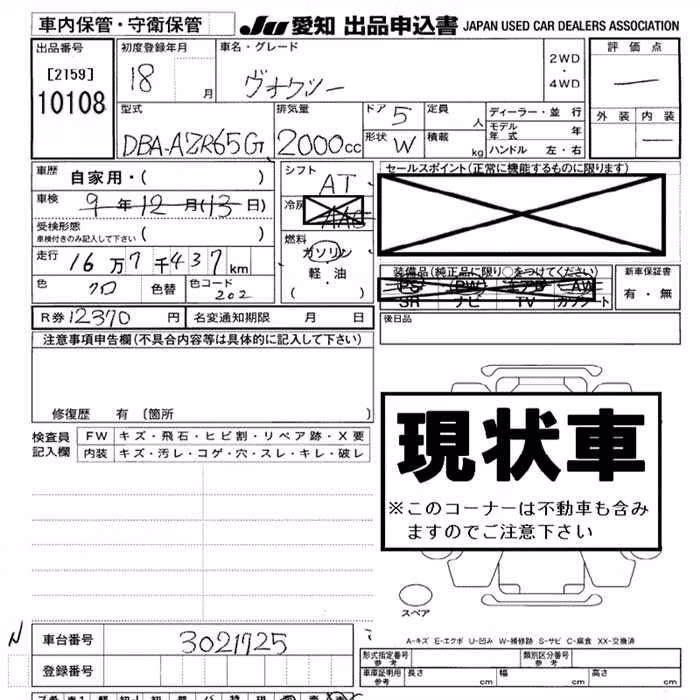 車内保管・守衛保管
JU 愛知 出品申込書 JAPAN USED CAR DEALERS ASSOCIATION
出品番号
[2159]
10108
初度登録年月
18 月
車名・グレード
ヴォクシー
2WD
・
4WD
評価点
—
外装 内装
—
型式
DBA-AZR65G
排気量
2000cc
ドア 5
形状 W
定員 人
積載 kg
ディーラー・並行
モデル年式 年
ハンドル 左・右
車歴 自家用・( )
車検 9年12月(13日)
受検形態
車検付きのみ記入して下さい ( )
走行 16万7千437km
色 クロ 色替 色コード 202
シフト
AT
冷房
AAC
燃料
ガソリン
・
軽・油
( )
セールスポイント(正常に機能するものに限ります)
装備品(純正品に限り○をつけてください)
PS PW エアB AW
SR ナビ TV カワシート
新車保証書
有・無
R券 12370 円 名変通知期限 月 日
後日品
注意事項申告欄(不具合内容等は具体的に記入して下さい)
修復歴 有 〔箇所 〕
検査員記入欄
FW キズ・飛石・ヒビ割・リペア跡・X要
内装 キズ・汚レ・コゲ・穴・スレ・キレ・破レ
現状車
※このコーナーは不動車も含み
ますのでご注意下さい
スペア
A-キズ E-エクボ U-凹み W-補修跡 S-サビ C-腐食 XX-交換済
N
車台番号 3021925
登録番号
形式指定番号 参考
類別区分番号 参考
車庫証明用 参考 長さ cm 幅 cm 高さ cm